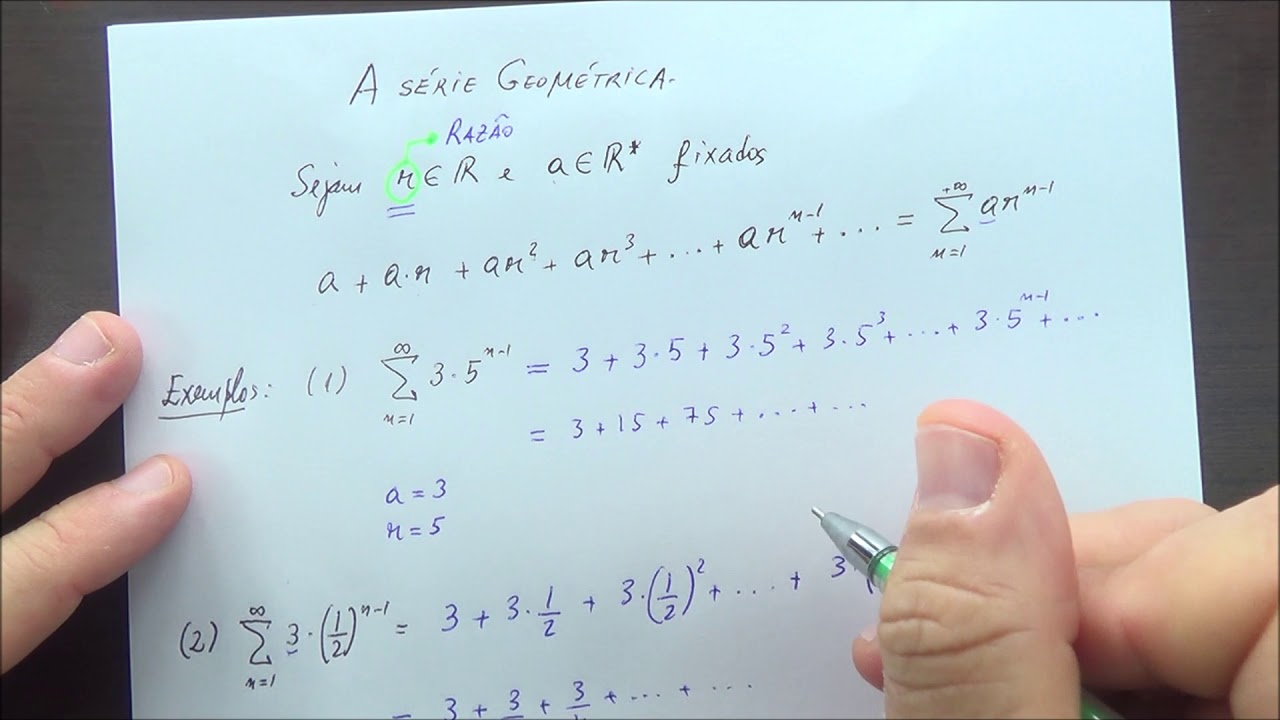 A SÉRIE GEOMÉTRICA.
RAZÃO
Sejam r ∈ ℝ e a ∈ ℝ* fixados
a + a·r + ar² + ar³ + ... + ar^(n-1) + ... = ∑_{n=1}^{+∞} ar^(n-1)
Exemplos: (1) ∑_{n=1}^{∞} 3·5^(n-1) = 3 + 3·5 + 3·5² + 3·5³ + ... + 3·5^(n-1) + ...
= 3 + 15 + 75 + ... + ...
a = 3
r = 5
(2) ∑_{n=1}^{∞} 3·(1/2)^(n-1) = 3 + 3·1/2 + 3·(1/2)² + ... + 3
= 3 + 3/2 + 3/4 + ... + ...